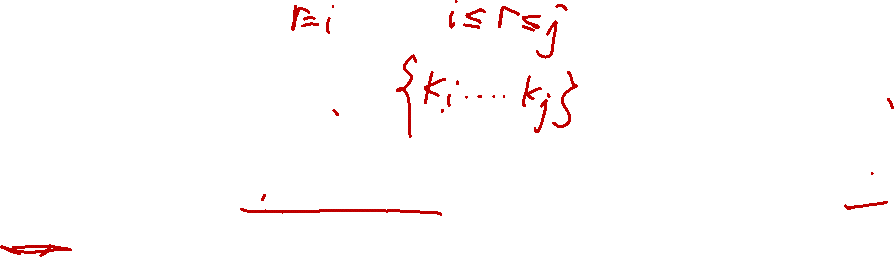 r=i i≤r≤j
{Ki.....Kj}